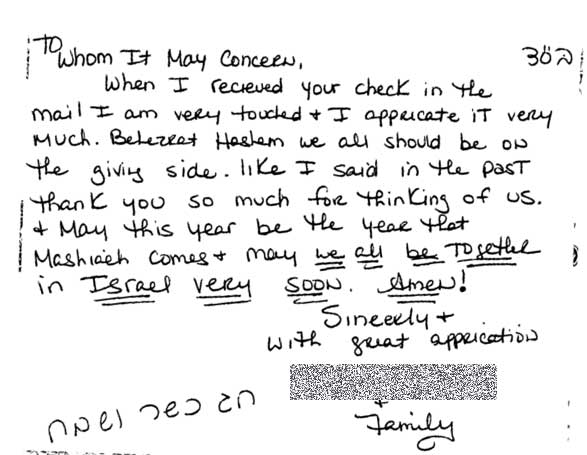 TO
Whom It May Concern,
בס"ד
When I recieved your check in the
mail I am very touched + I appricate it very
Much. Behezrat Hashem we all should be on
the giving side. like I said in the past
thank you so much for thinking of us.
+ May this year be the year that
Mashiach comes + may we all be together
in Israel very soon. Amen!
Sincerly +
with great appriciation
+
Family
חג כשר ושמח